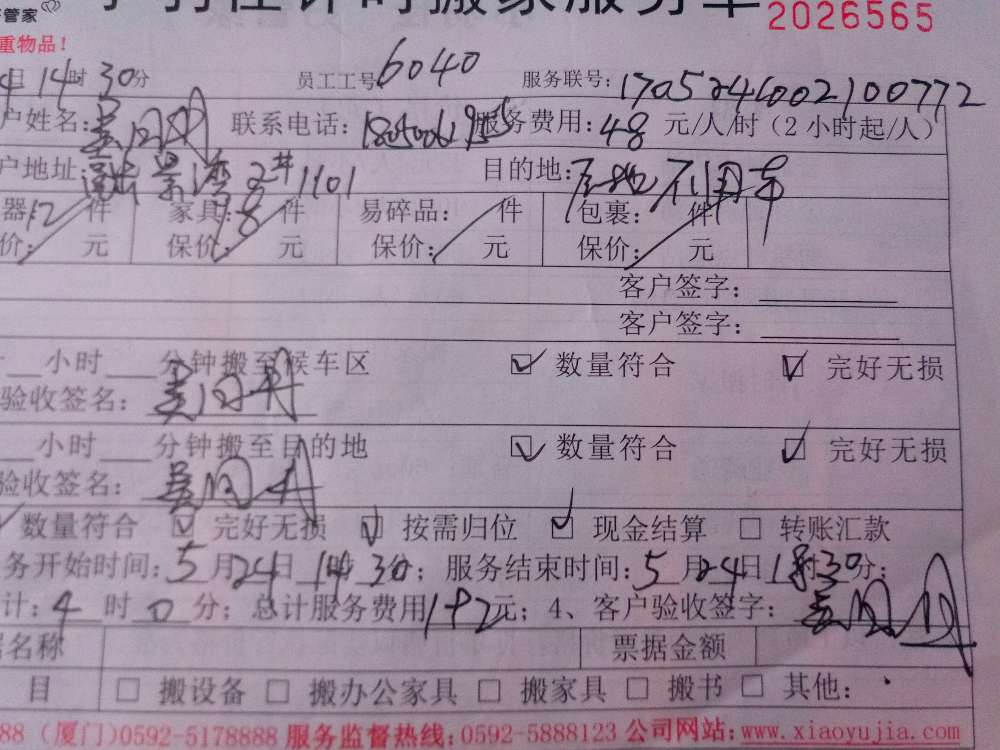 管家 计时搬家服务单 2026565
重物品！
日 14时 30分 员工工号 6040 服务联号：1705246002100772
户姓名： 联系电话： 服务费用：48 元/人/时（2小时起/人）
户地址： 景湾 2# 1101 目的地： 不用车
器：12 件 家具：8 件 易碎品： 件 包裹： 件
价： 元 保价： 元 保价： 元 保价： 元
客户签字：
客户签字：
小时 分钟搬至候车区 ☑ 数量符合 ☑ 完好无损
验收签名：
小时 分钟搬至目的地 ☑ 数量符合 ☑ 完好无损
验收签名：
数量符合 ☑ 完好无损 ☑ 按需归位 ☑ 现金结算 □ 转账汇款
务开始时间：5月24日14时30分；服务结束时间：5月24日18时30分；
计：4时0分；总计服务费用192元；4、客户验收签字：
据名称 票据金额
目 □ 搬设备 □ 搬办公家具 □ 搬家具 □ 搬书 □ 其他：
88 (厦门)0592-5178888 服务监督热线：0592-5888123 公司网站：www.xiaoyujia.com